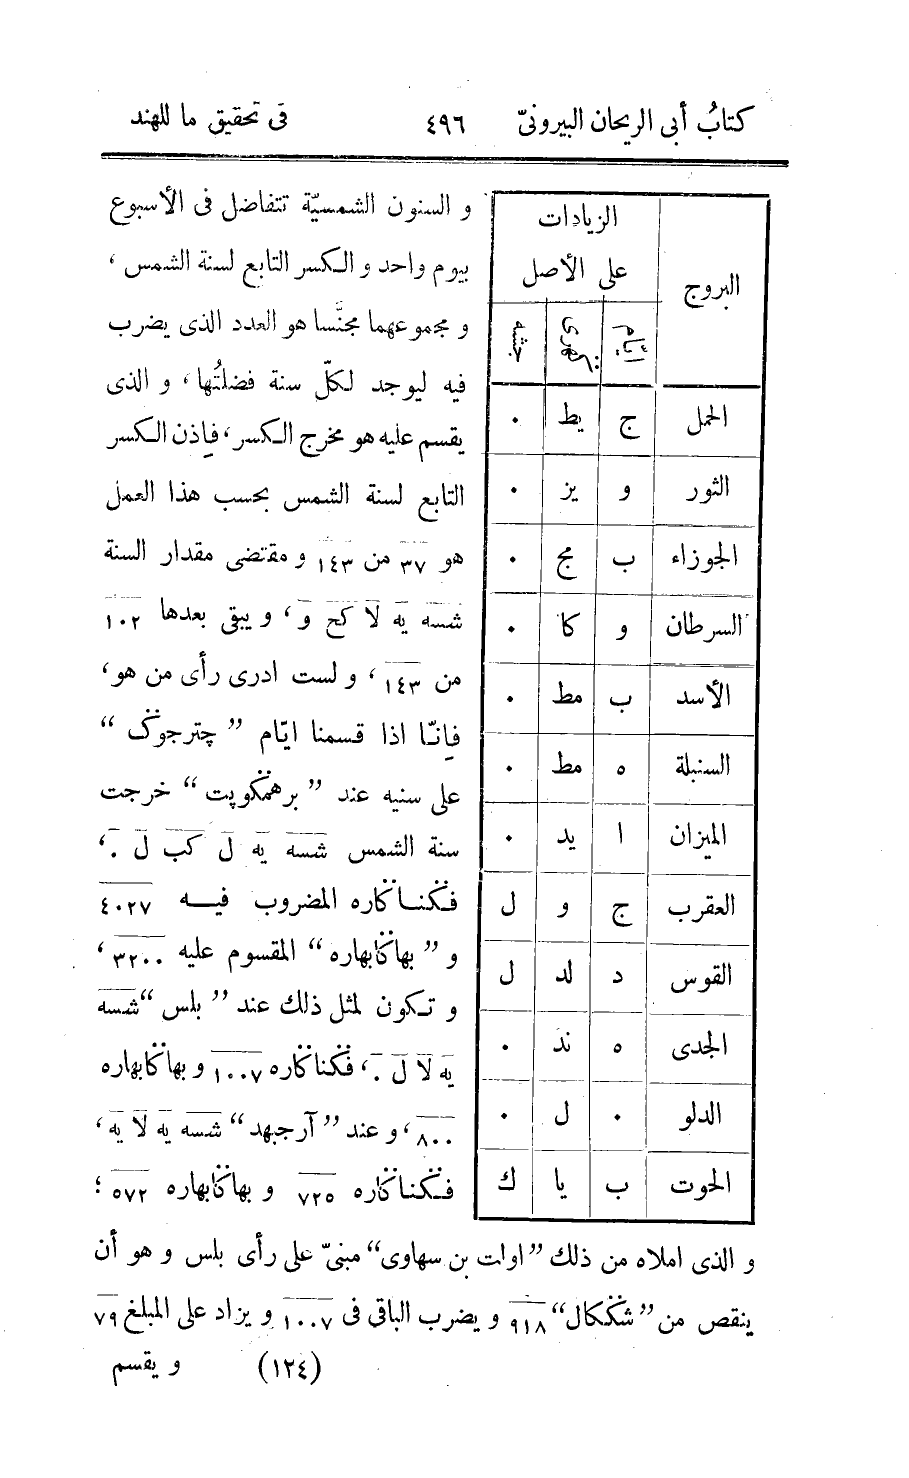 كتابُ أبى الريحان البيرونىّ ٤٩٦ فى تحقيق ما للهند
البروج الزيادات على الأصل
ايّام كهرى جشه
الحمل ج يط ٠
الثور و يز ٠
الجوزاء ب مج ٠
السرطان و كا ٠
الأسد ب مط ٠
السنبلة ه مط ٠
الميزان ا يد ٠
العقرب ج و ل
القوس د لد ل
الجدى ه ند ٠
الدلو ٠ ل ٠
الحوت ب يا ك
و السنون الشمسيّة تتفاضل فى الأسبوع
بيوم واحد و الكسر التابع لسنة الشمس،
و مجموعهما مجنَّسا هو العدد الذى يضرب
فيه ليوجد لكلّ سنة فضلتُها، و الذى
يقسم عليه هو مخرج الكسر، فإذن الكسر
التابع لسنة الشمس بحسب هذا العمل
هو ٣٧ من ١٤٣ و مقتضى مقدار السنة
شسه يه لا كح و، و يبقى بعدها ١٠٢
من ١٤٣، و لست ادرى رأى من هو،
فإنّا اذا قسمنا ايّام ”چترجوگ“
على سنيه عند ”برهمگوپت“ خرجت
سنة الشمس شسه يه ل كب ل ٠،
فگناگاره المضروب فيه ٤٠٢٧
و ”بهاگابهاره“ المقسوم عليه ٣٢٠٠،
و تكون لمثل ذلك عند ”بلس“ شسه
يه لا ل ٠، فگناگاره ١٠٠٧ و بهاگابهاره
٨٠٠، و عند ”آرجبهد“ شسه يه لا يه،
فگناگاره ٧٢٥ و بهاگابهاره ٥٧٢؛
و الذى املاه من ذلك ”اولت بن سهاوى“ مبنىّ على رأى بلس و هو أن
ينقص من ”شگكال“ ٩١٨ و يضرب الباقى فى ١٠٠٧ و يزاد على المبلغ ٧٩
(١٢٤) و يقسم